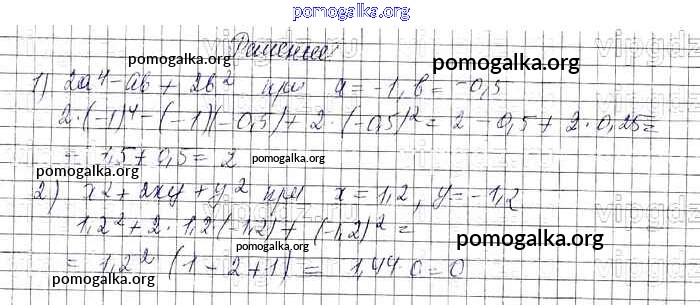 pomogalka.org
Решение:
pomogalka.org
pomogalka.org
1) 2a⁴ - ab + 2b² при a = -1, b = -0,5
pomogalka.org
2·(-1)⁴ - (-1)(-0,5) + 2·(-0,5)² = 2 - 0,5 + 2·0,25 =
= 1,5 + 0,5 = 2
pomogalka.org
pomogalka.org
2) x² + 2xy + y² при x = 1,2, y = -1,2
1,2² + 2·1,2·(-1,2) + (-1,2)² =
pomogalka.org
pomogalka.org
= 1,2² (1 - 2 + 1) = 1,44·0 = 0
pomogalka.org
pomogalka.org